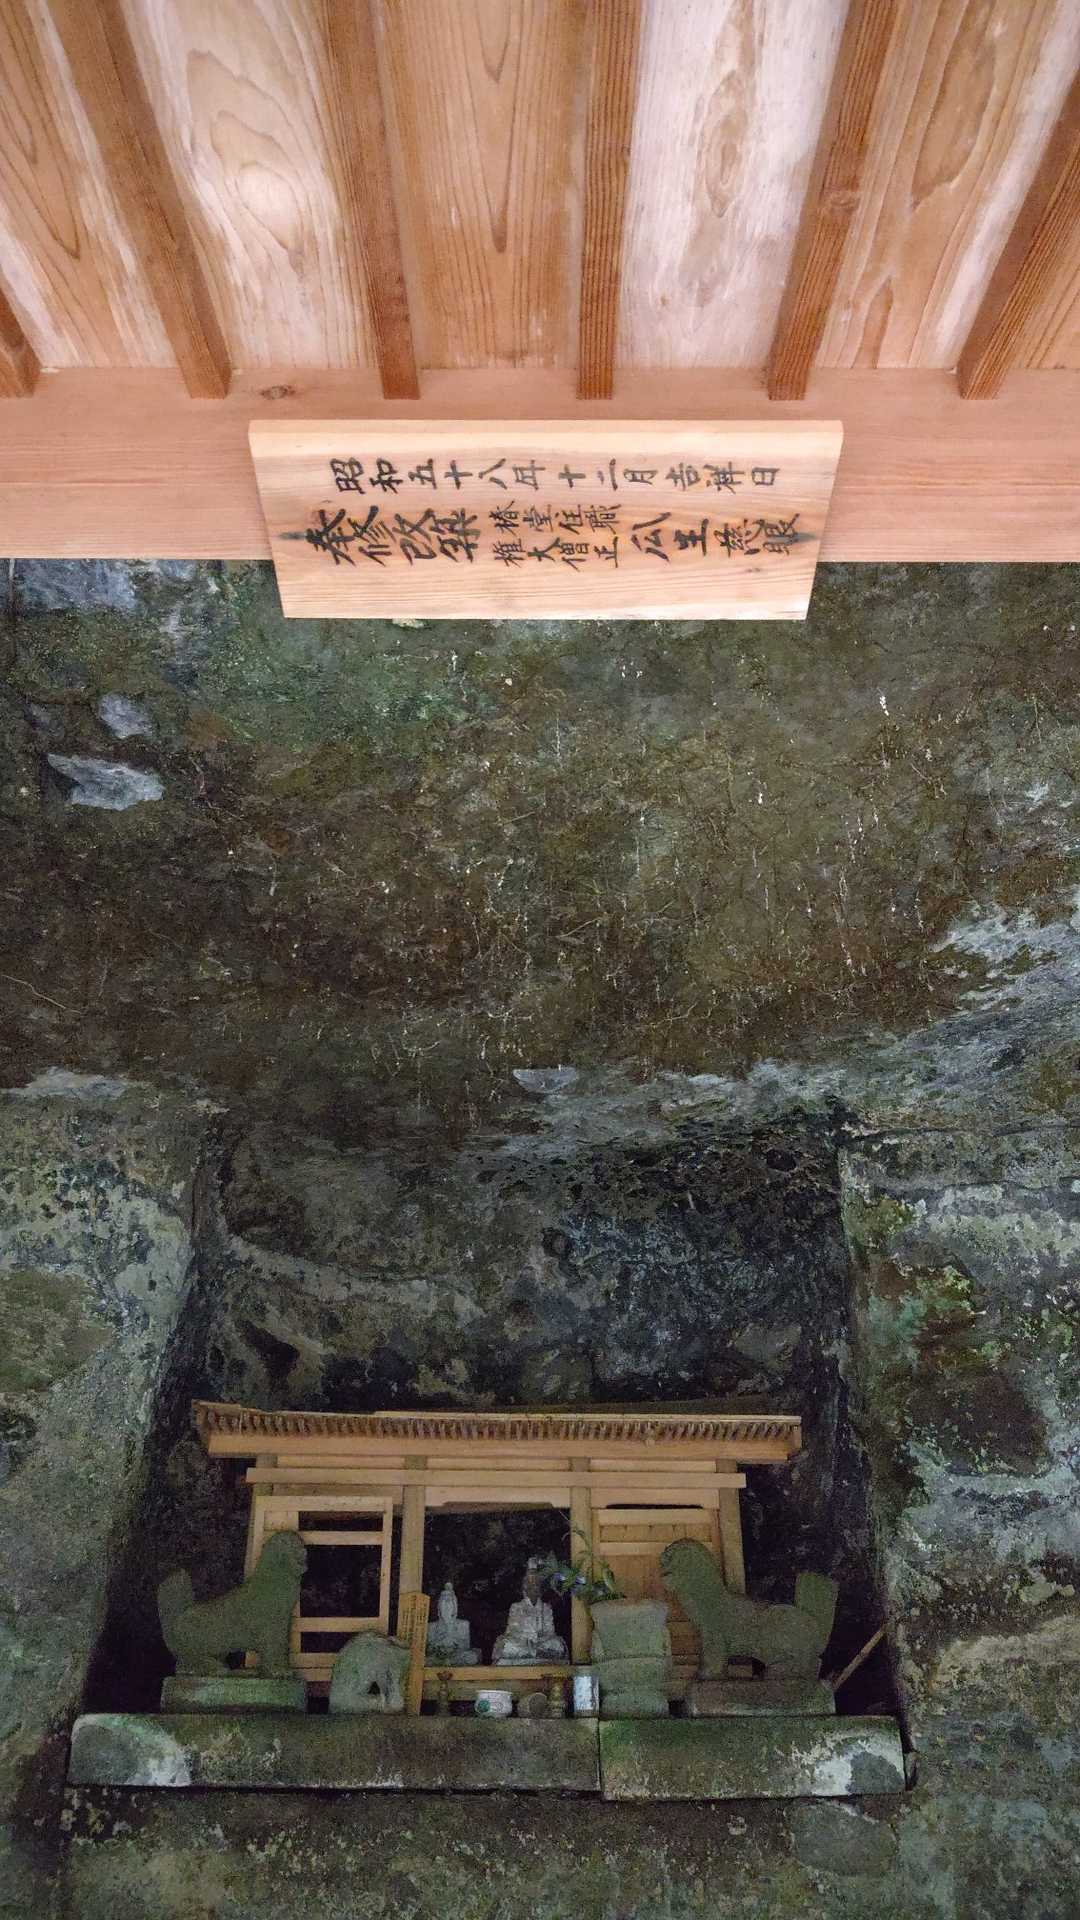 昭和五十八年十二月吉祥日
奉修改築
椿堂住職
権大僧正
瓜生慈眼